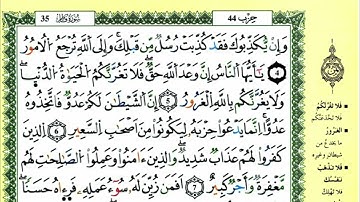 35 سورة فاطر حزب 44
وَإِن يُكَذِّبُوكَ فَقَدْ كُذِّبَتْ رُسُلٌ مِّن قَبْلِكَ وَإِلَى ٱللَّهِ تُرْجَعُ ٱلْأُمُورُ
4 يَٰٓأَيُّهَا ٱلنَّاسُ إِنَّ وَعْدَ ٱللَّهِ حَقٌّ فَلَا تَغُرَّنَّكُمُ ٱلْحَيَوٰةُ ٱلدُّنْيَا
وَلَا يَغُرَّنَّكُم بِٱللَّهِ ٱلْغَرُورُ 5 إِنَّ ٱلشَّيْطَٰنَ لَكُمْ عَدُوٌّ فَٱتَّخِذُوهُ
عَدُوًّا إِنَّمَا يَدْعُوا۟ حِزْبَهُۥ لِيَكُونُوا۟ مِنْ أَصْحَٰبِ ٱلسَّعِيرِ 6 ٱلَّذِينَ
كَفَرُوا۟ لَهُمْ عَذَابٌ شَدِيدٌ وَٱلَّذِينَ ءَامَنُوا۟ وَعَمِلُوا۟ ٱلصَّٰلِحَٰتِ لَهُم
مَّغْفِرَةٌ وَأَجْرٌ كَبِيرٌ 7 أَفَمَن زُيِّنَ لَهُۥ سُوٓءُ عَمَلِهِۦ فَرَءَاهُ حَسَنًا
فَلَا تَغُرَّنَّكُمُ
فَلَا تَذْهَبْ
نَفْسُكَ